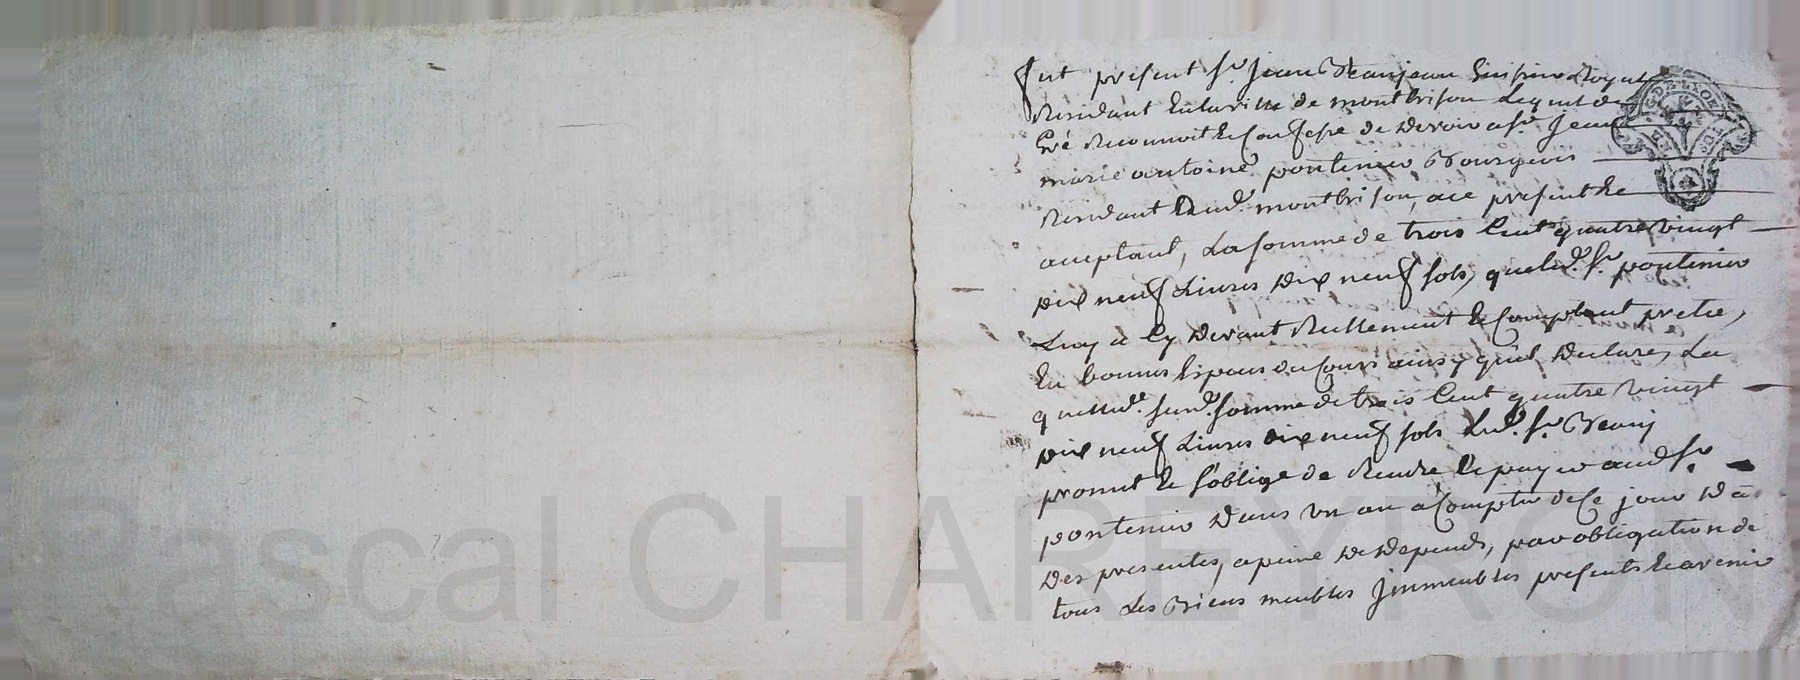 fut present sr. Jean Beaujean huissier Royal
Residant en la ville de montbrison Lequel de
Gré Reconnoit et Confesse de Devoir a sr. Jean
marie antoine pontenier Bourgeois
Residant aud. montbrison, ace present et
acceptant, La somme de trois Cent quatre vingt
Dix neuf Livres Dix neuf sols, que led. sr. pontenier
Luy a Cy Devant Reellement et Comptant pretée,
En bonnes Especes du Cours ainsy quil Declare, La
quelle de. somme de trois Cent quatre vingt
Dix neuf Livres dix neuf sols Led. sr. Beauj
promet et s'oblige de Rendre et payer aud. sr.
pontenier Dans un an a Compter de Ce jour D
Des presentes, apeine De Depends, par obligation de
tous Les Biens meubles Jmmeubles presents et avenir
G. DE LYON
Pascal CHAREYRON